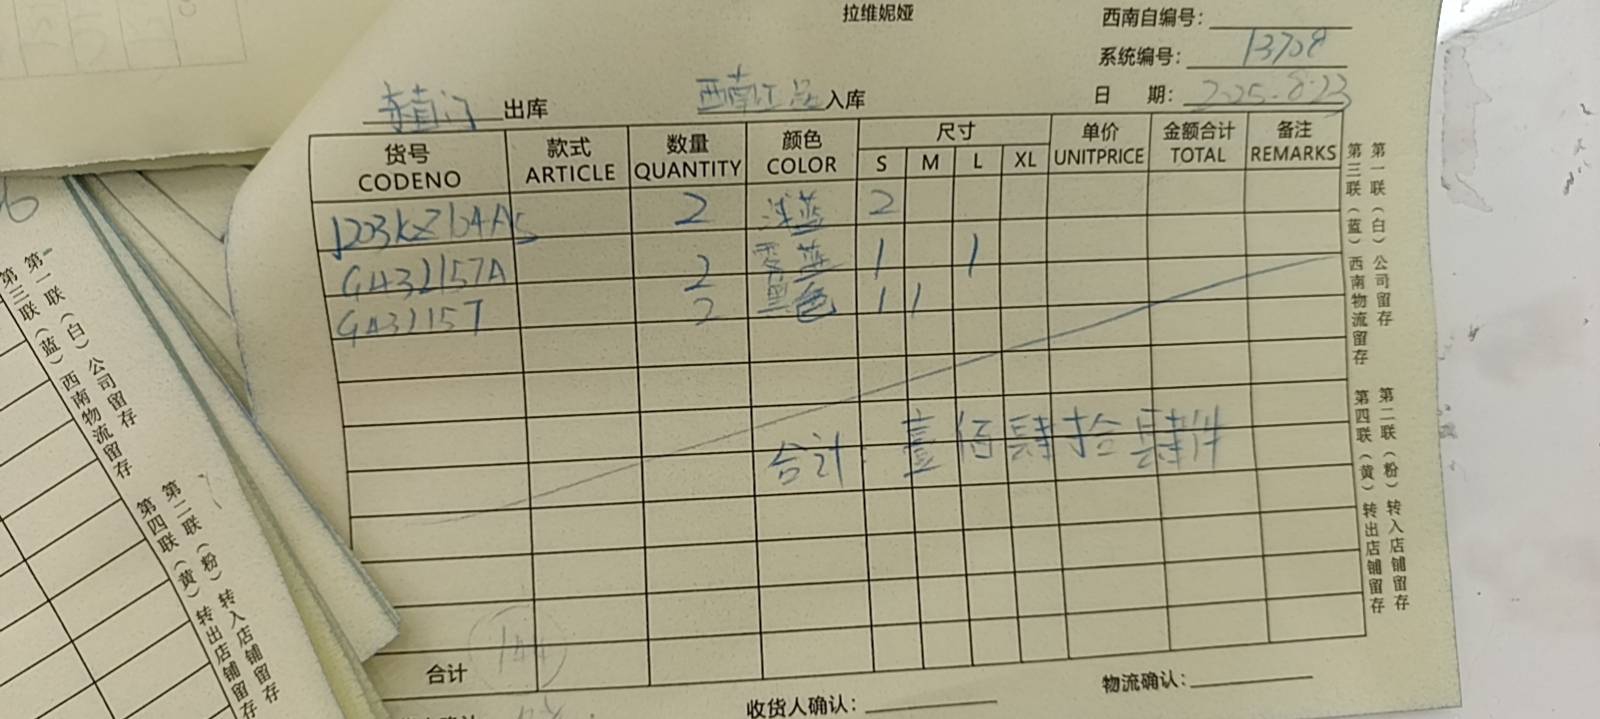 拉维妮娅
西南自编号：
系统编号： 13708
日 期： 2025.8.23
出库 西南正品 入库
货号 CODENO 款式 ARTICLE 数量 QUANTITY 颜色 COLOR 尺寸 S M L XL 单价 UNITPRICE 金额合计 TOTAL 备注 REMARKS
2 浅蓝 2
G431157A 2 雾蓝 1 1
G431157 2 黑色 1 1
合计：壹佰肆拾肆件
合计 144
收货人确认：
物流确认：
第一联（白）公司留存
第三联（蓝）西南物流留存
第二联（粉）转入店铺留存
第四联（黄）转出店铺留存
第一联（白）公司留存
第三联（蓝）西南物流留存
第二联（粉）转入店铺留存
第四联（黄）转出店铺留存